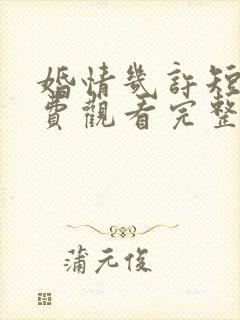 婚情幾許短
費觀看完整
蒲元俊